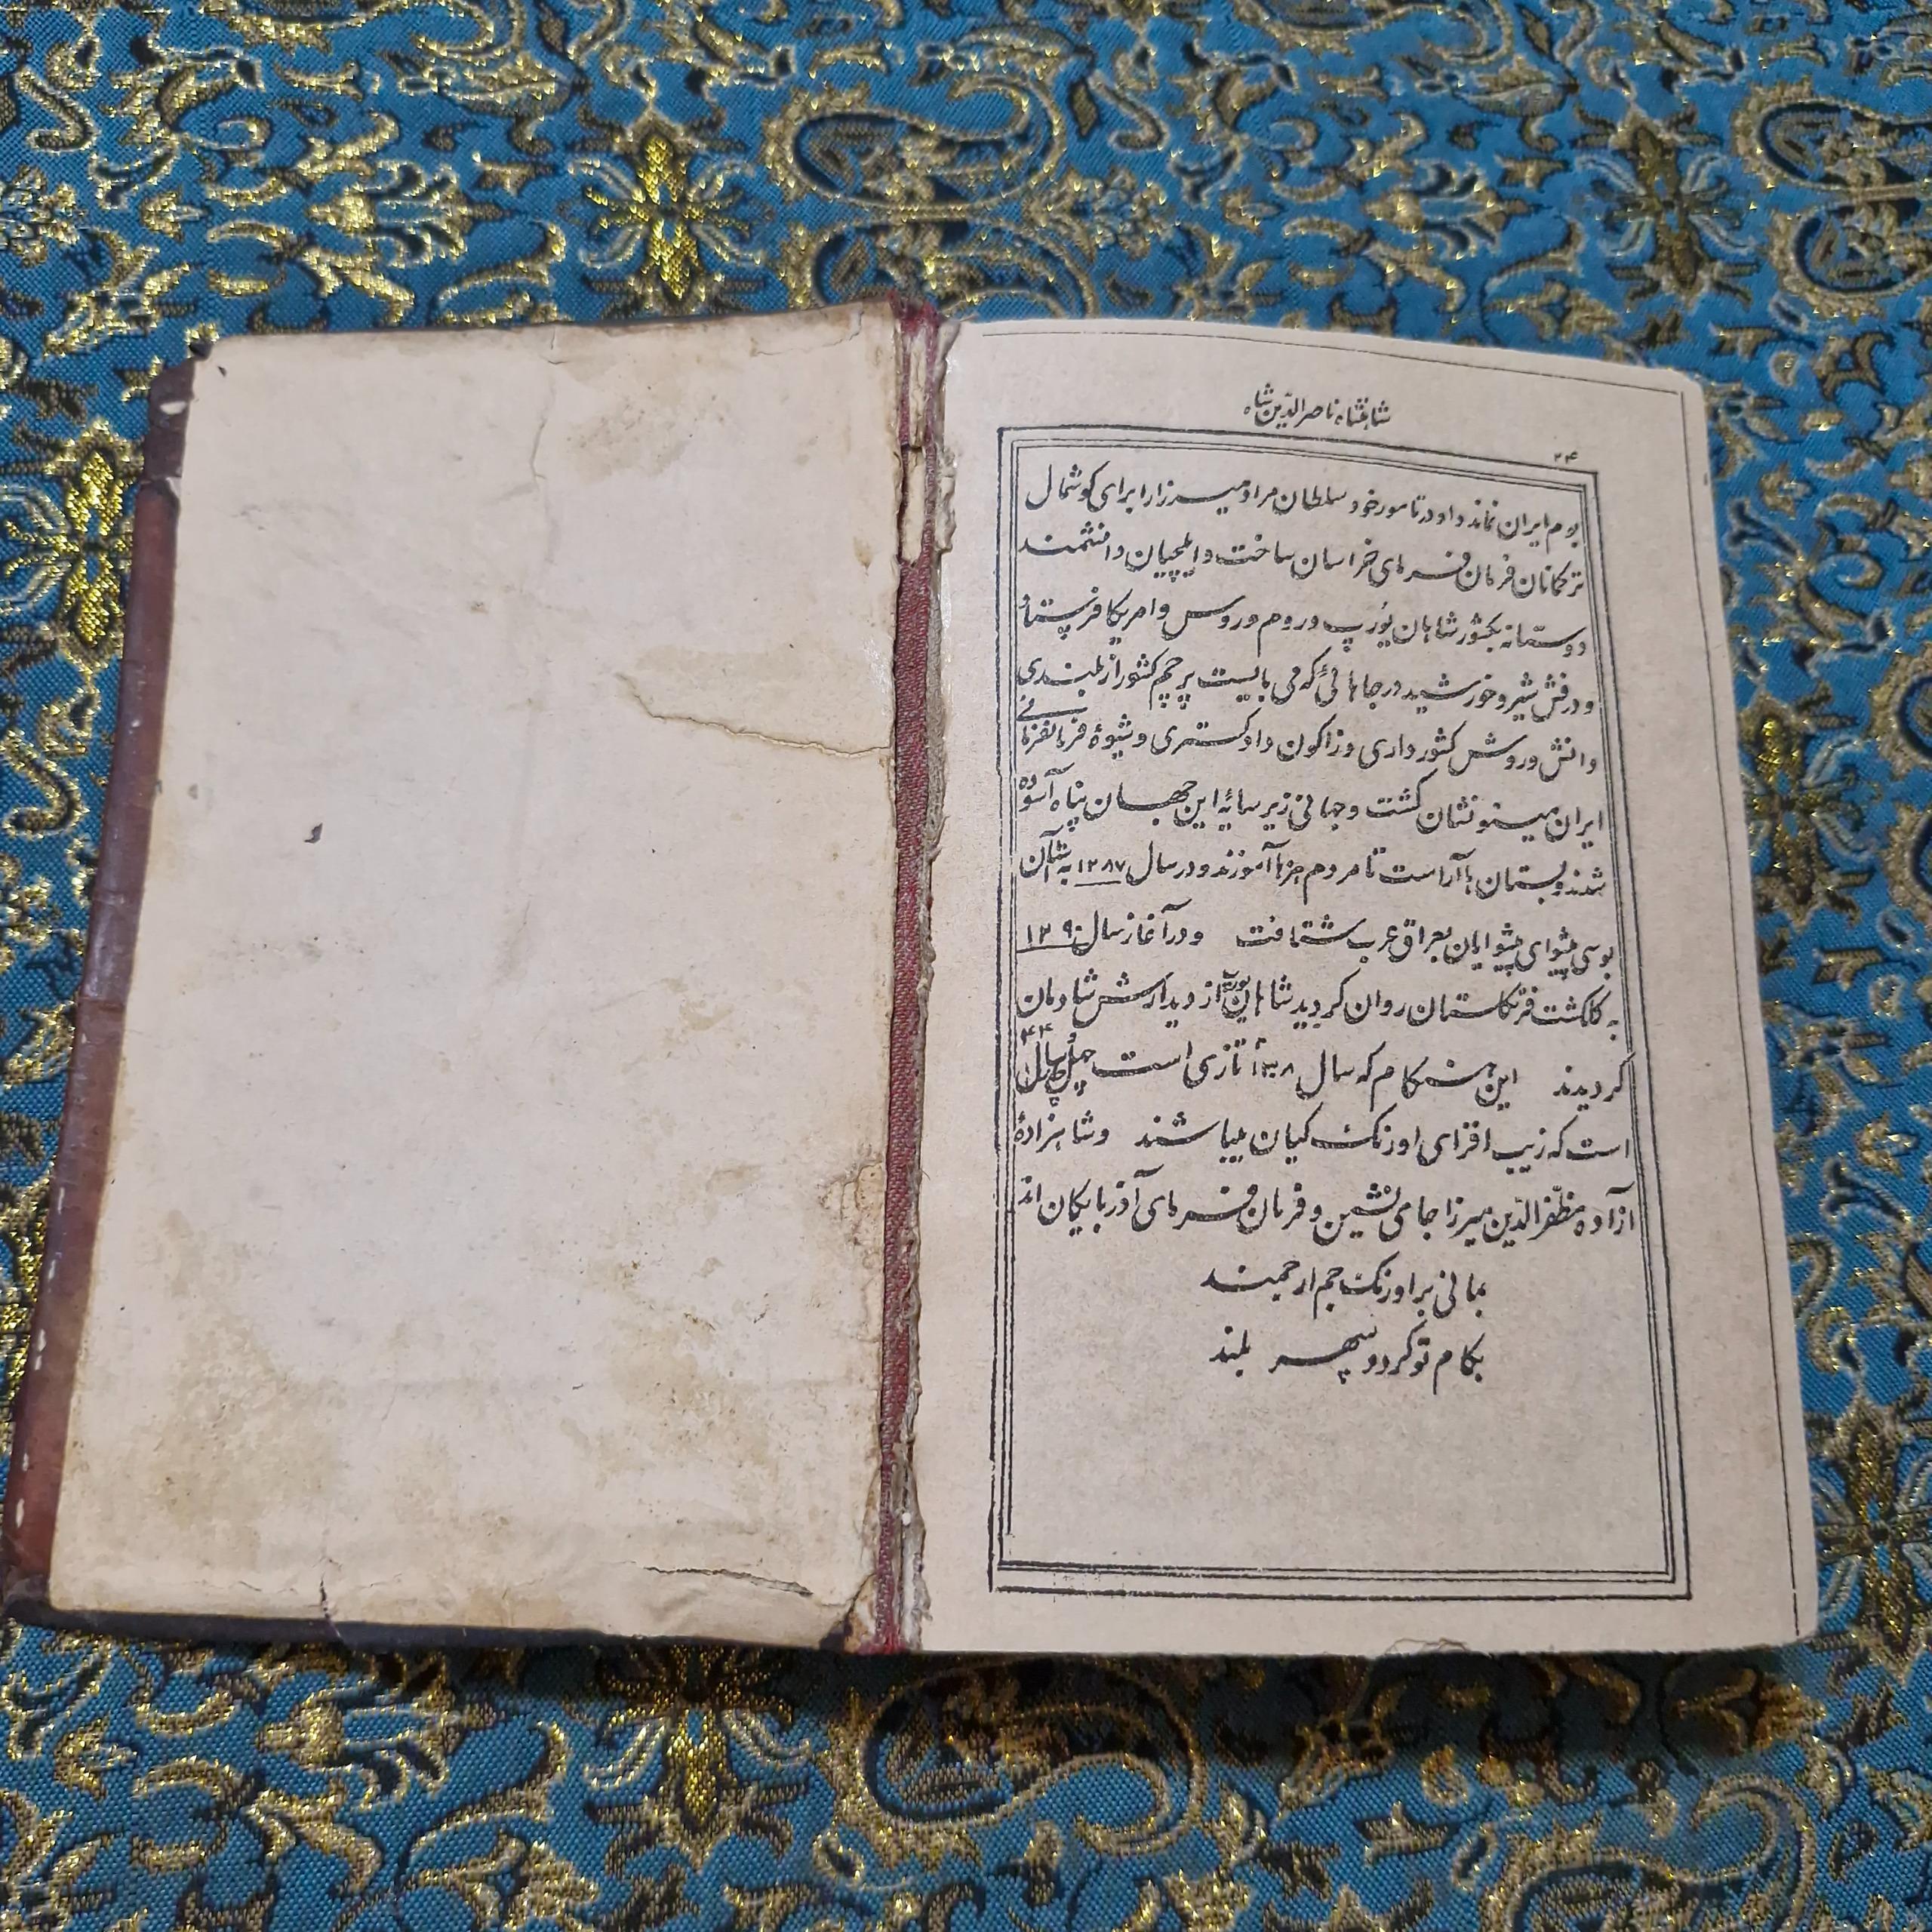 شاهنشاه ناصرالدین شاه
۲۴
بوم ایران نماند و او در تامور خود سلطان مراد میرزا را برای کوشمال
ترکمانان فرمان فرمای خراسان ساخت و ایلچیان دانشمند
دوستانه بکشور شاهان یورپ و روم و روس و امریکا فرستاد
و درفش شیر و خورشید در جاهائی که می بایست پرچم کشور از بلندی
دانش و روش کشور داری و زاکون دادکستری و شیوهٔ فرمانفرمائی
ایران مینو نشان کشت و جهانی زیر سایهٔ این جهان پناه آسوده
شدند دبستان ها آراست تا مردم هنرها آموزند و در سال ۱۲۸۷ به آستان
بوسی پیشوای پیشوایان بعراق عرب شتافت و در آغاز سال ۱۲۹۰
به کلکشت فرنکستان روان کردید شاهان یورپ از دیدارش شادمان
کردیدند این هنکام که سال تازی است چهل سال
است که زیب افزای اورنک کیان میباشند و شاهزادهٔ
آزاده مظفرالدین میرزا جای نشین و فرمان فرمای آذربایکان اند
بمانی بر اورنک جم ارجمند
بکام تو کردد سپهر بلند